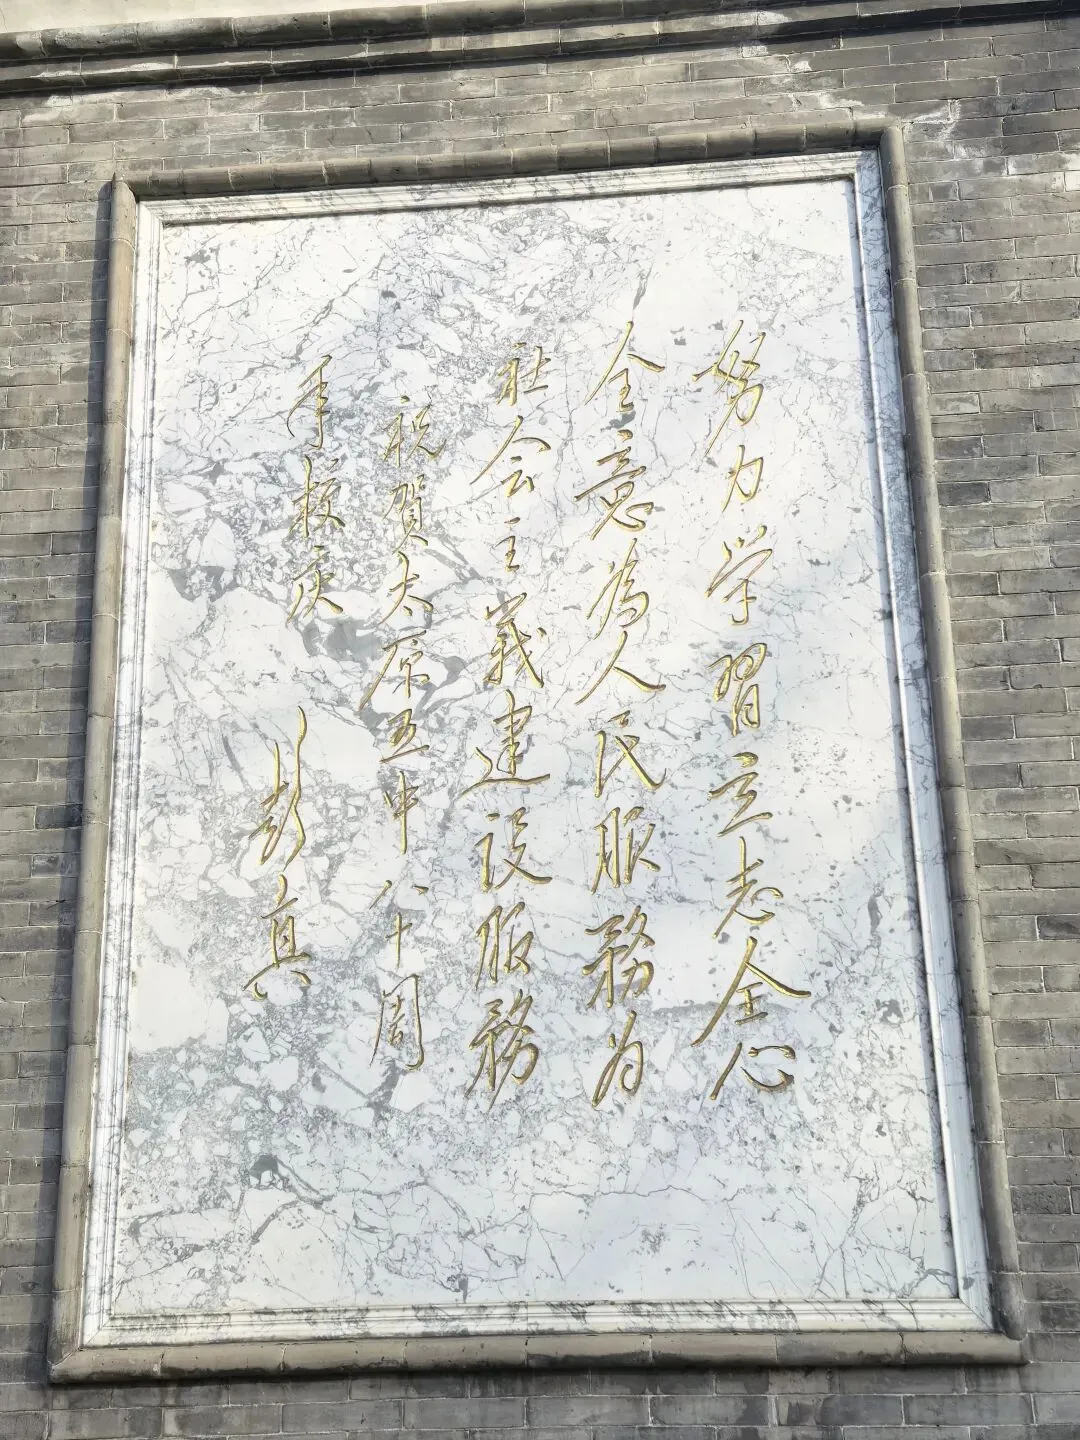 努力学習立志全心
全意為人民服務为
社会主義建設服務
祝賀太原五中八十周
年校庆
彭真